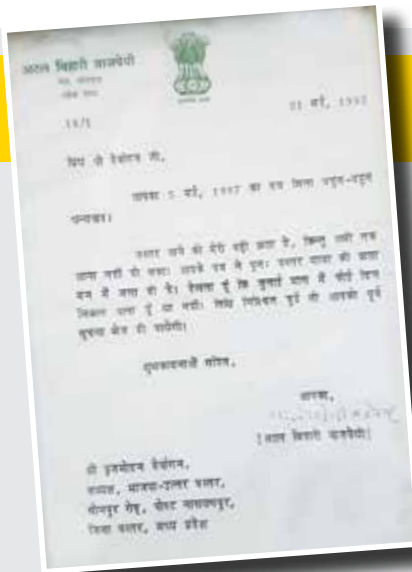 अटल बिहारी वाजपेयी
नेता, प्रतिपक्ष
लोक सभा
21 मई, 1997
प्रिय श्री देवांगन जी,
आपका 5 मई, 1997 का पत्र मिला बहुत-बहुत
धन्यवाद।
बस्तर आने की मेरी बड़ी इच्छा है, किन्तु अभी तक
आना नहीं हो सका। आपके पत्र ने पुनः बस्तर यात्रा की इच्छा
मन में जगा दी है। देखता हूँ कि जुलाई मास में कोई दिन
निकाल पाता हूँ या नहीं। तिथि निश्चित हुई तो आपको पूर्व
सूचना भेज दी जायेगी।
शुभकामनाओं सहित,
आपका,
[अटल बिहारी वाजपेयी]
श्री बृजमोहन देवांगन,
अध्यक्ष, भाजपा-उत्तर बस्तर,
सोनपुर रोड, पोस्ट नारायणपुर,
जिला बस्तर, मध्य प्रदेश